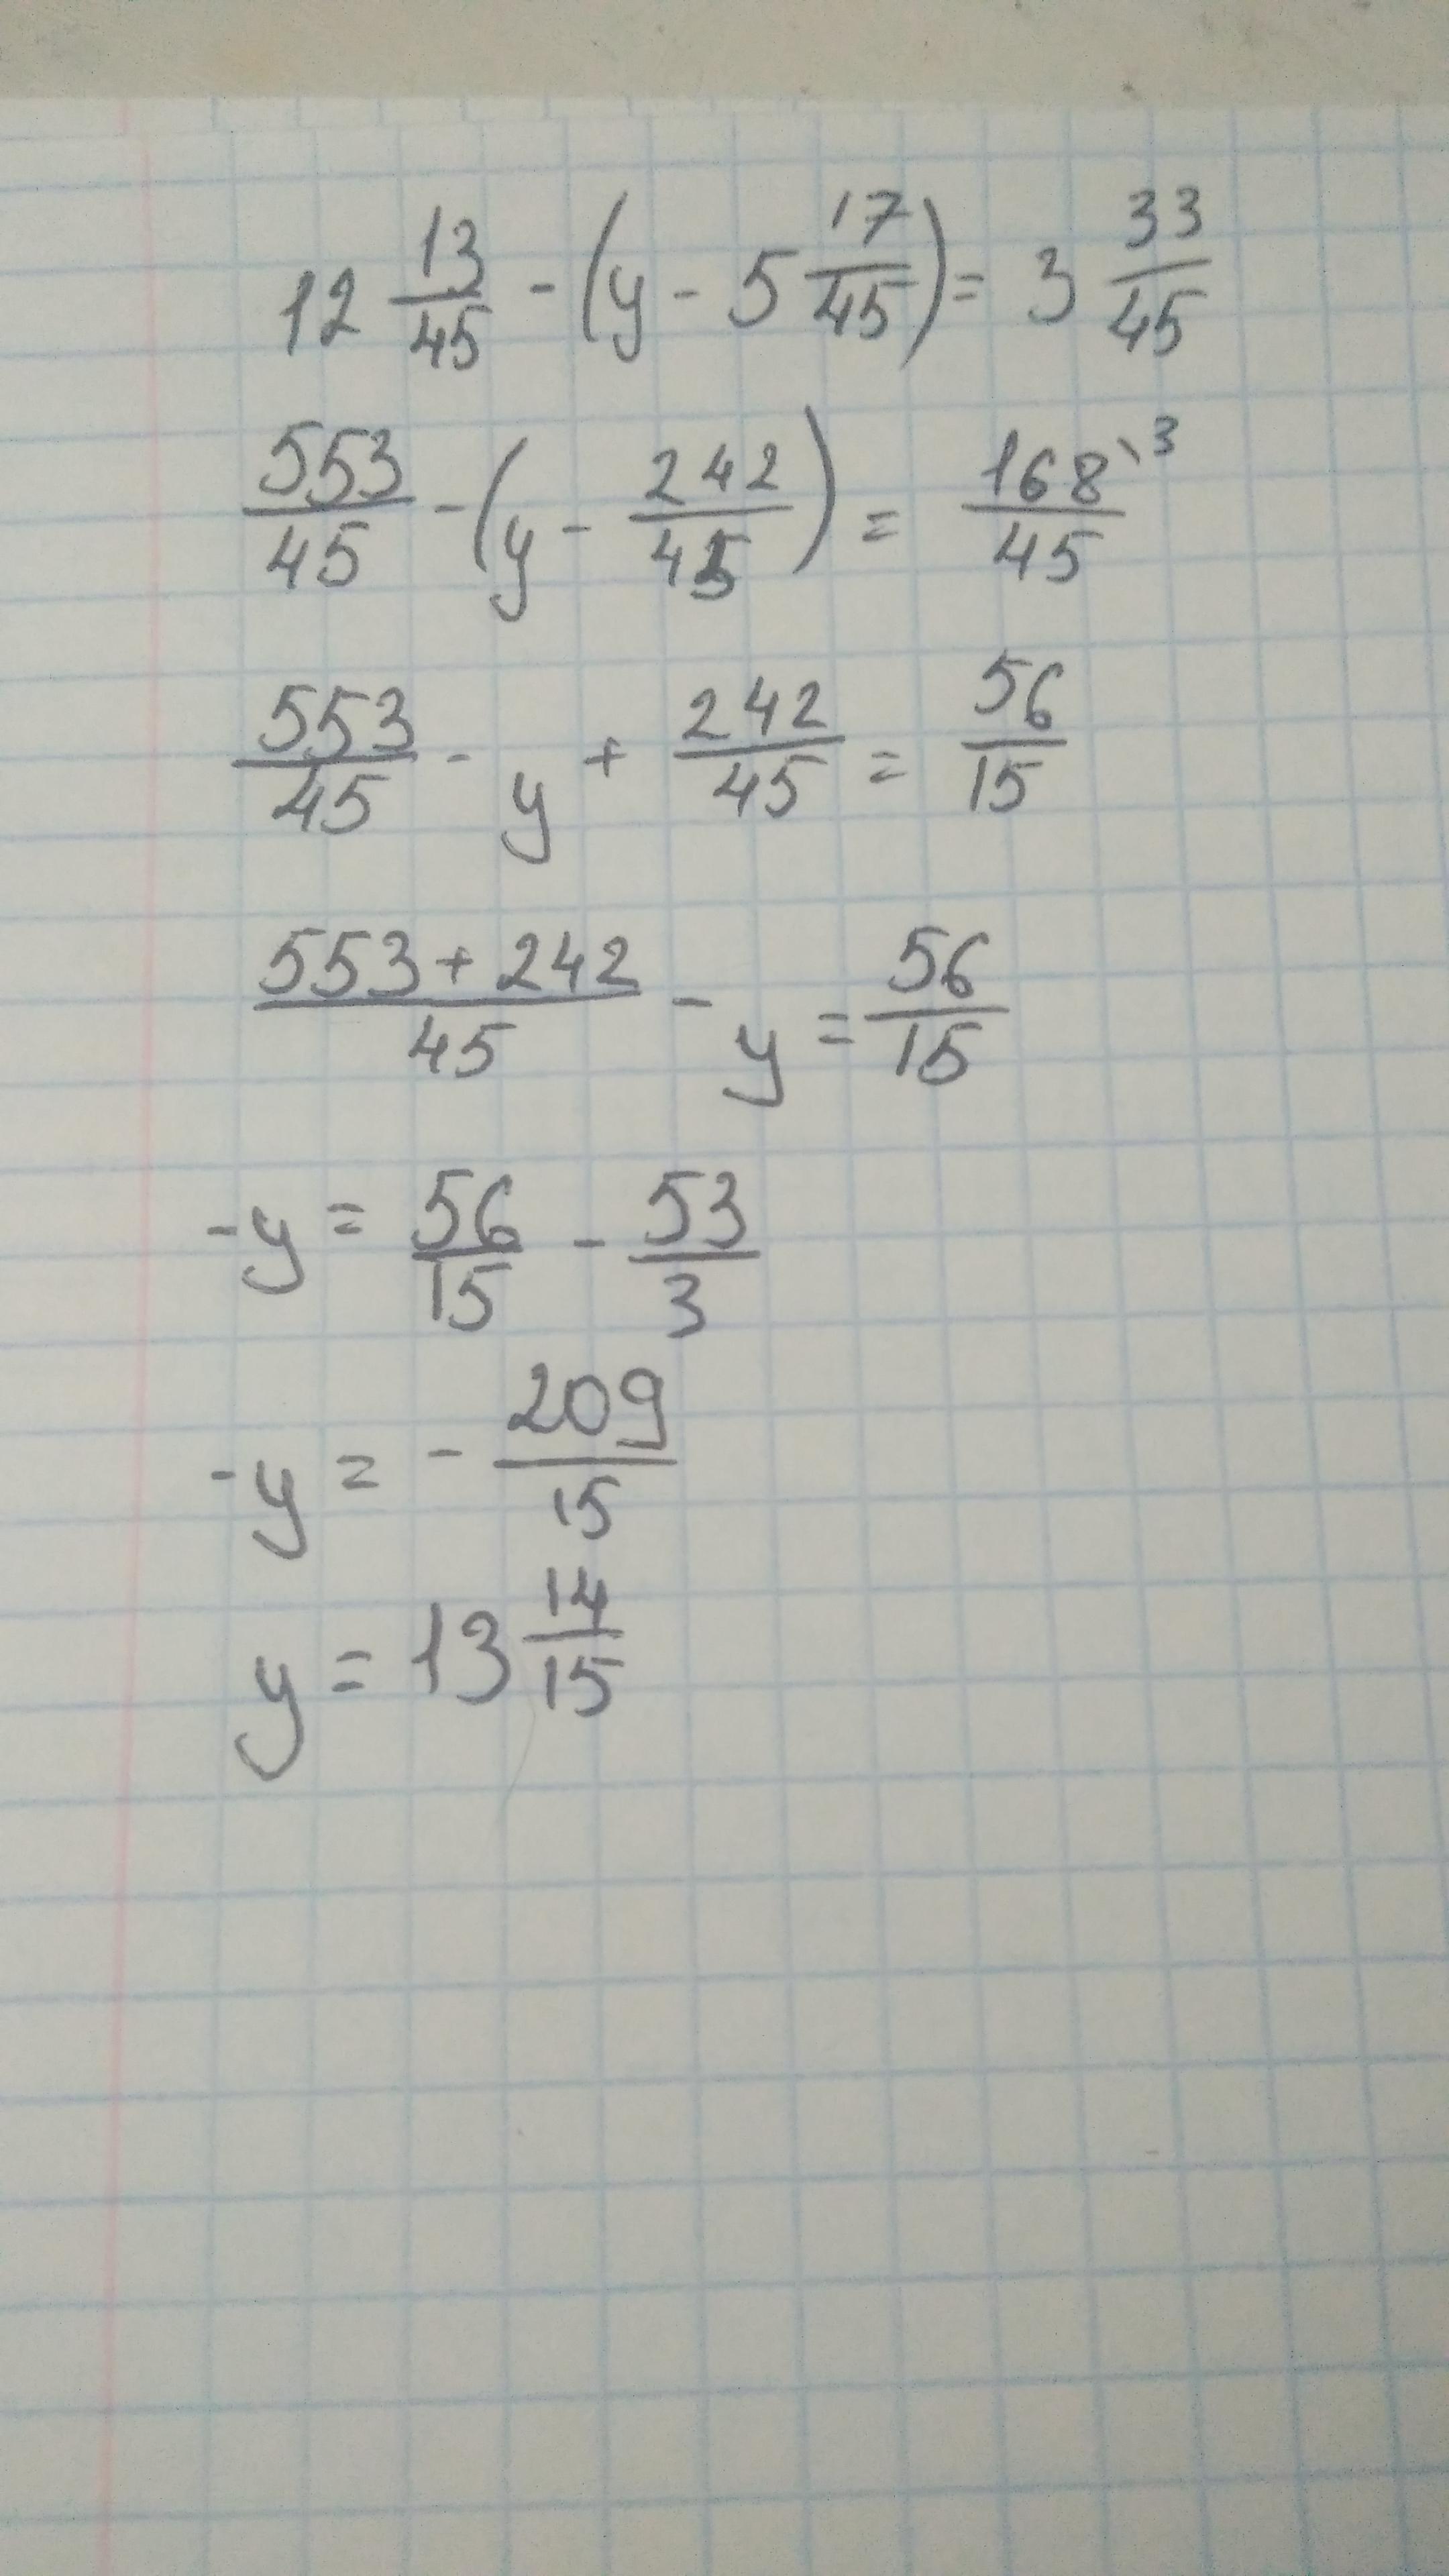 12 13/45 - (y - 5 17/45) = 3 33/45
553/45 - (y - 242/45) = 168/45 \3
553/45 - y + 242/45 = 56/15
(553 + 242)/45 - y = 56/15
-y = 56/15 - 53/3
-y = - 209/15
y = 13 14/15